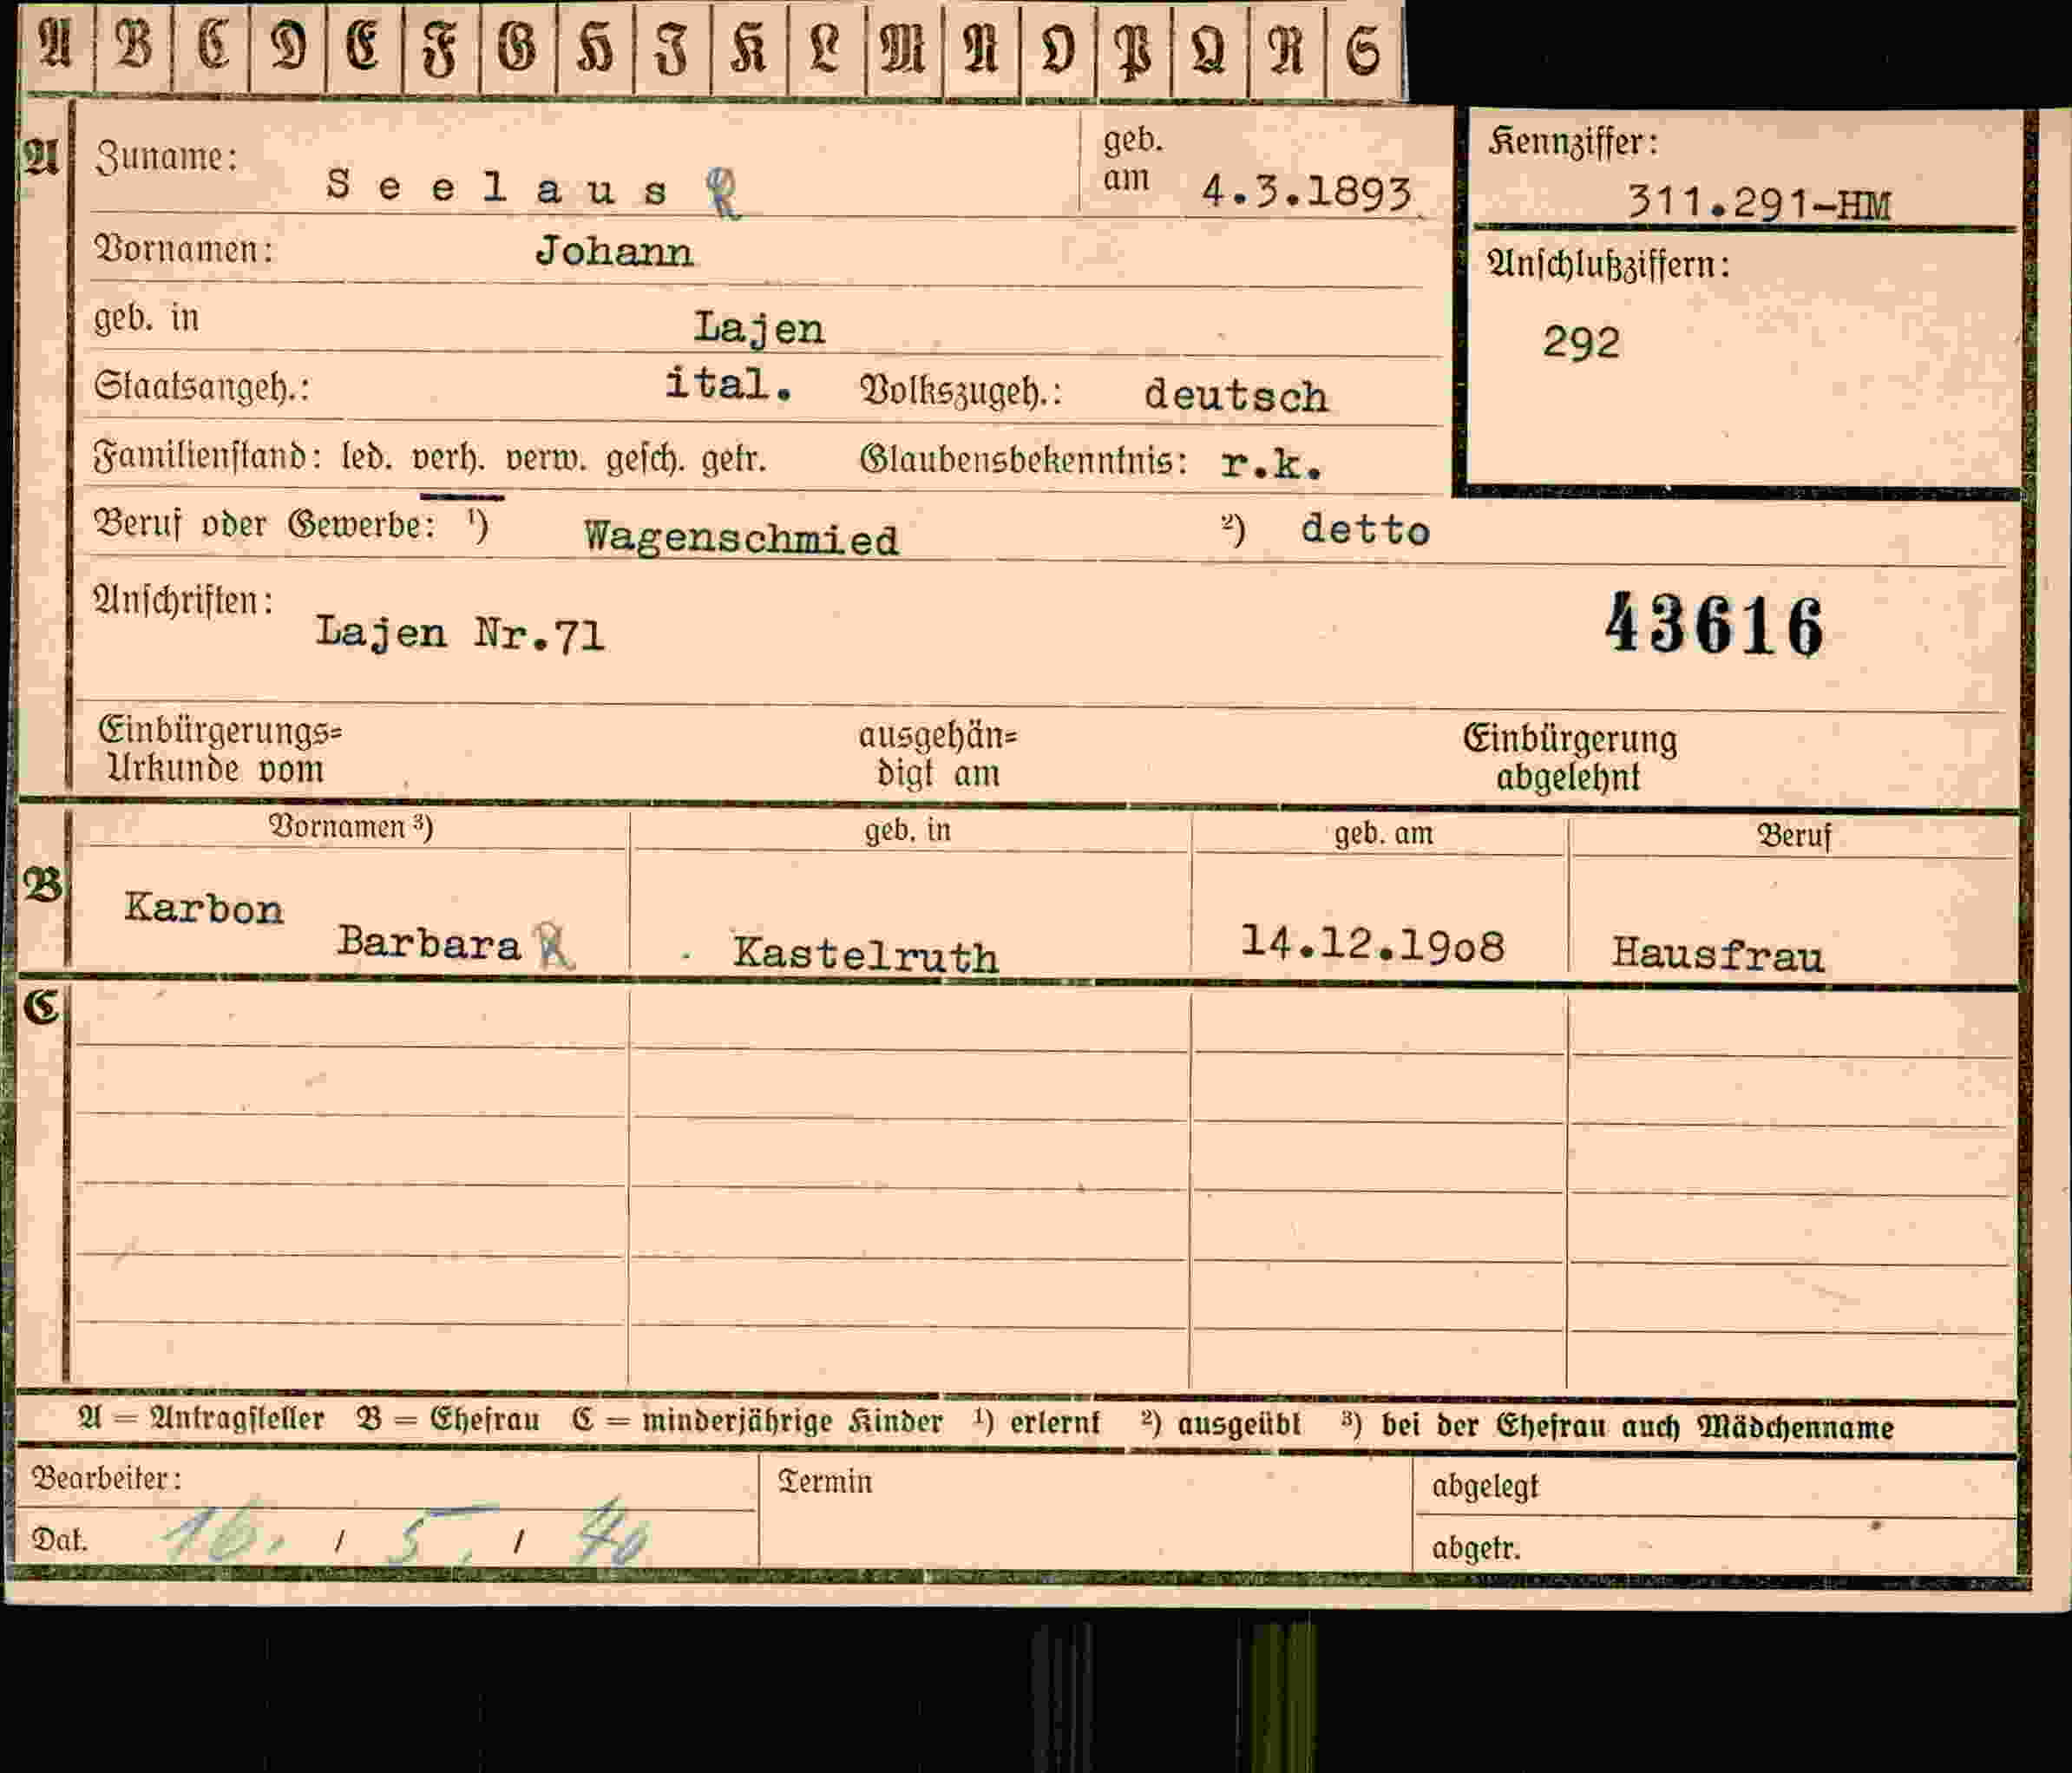 A B C D E F G H J K L M N O P Q R S
A Zuname: Seelaus R geb. am 4.3.1893
Kennziffer: 311.291-HM
Vornamen: Johann
Anschlußziffern: 292
geb. in Lajen
Staatsangeh.: ital. Volkszugeh.: deutsch
Familienstand: led. verh. verw. gesch. getr. Glaubensbekenntnis: r.k.
Beruf oder Gewerbe: ¹) Wagenschmied ²) detto
Anschriften: Lajen Nr.71 43616
Einbürgerungs= ausgehän= Einbürgerung
Urkunde vom digt am abgelehnt
Vornamen ³) geb. in geb. am Beruf
B Karbon
Barbara R Kastelruth 14.12.1908 Hausfrau
C
A = Antragsteller B = Ehefrau C = minderjährige Kinder ¹) erlernt ²) ausgeübt ³) bei der Ehefrau auch Mädchenname
Bearbeiter: Termin abgelegt
Dat. 16. / 5. / 40 abgetr.